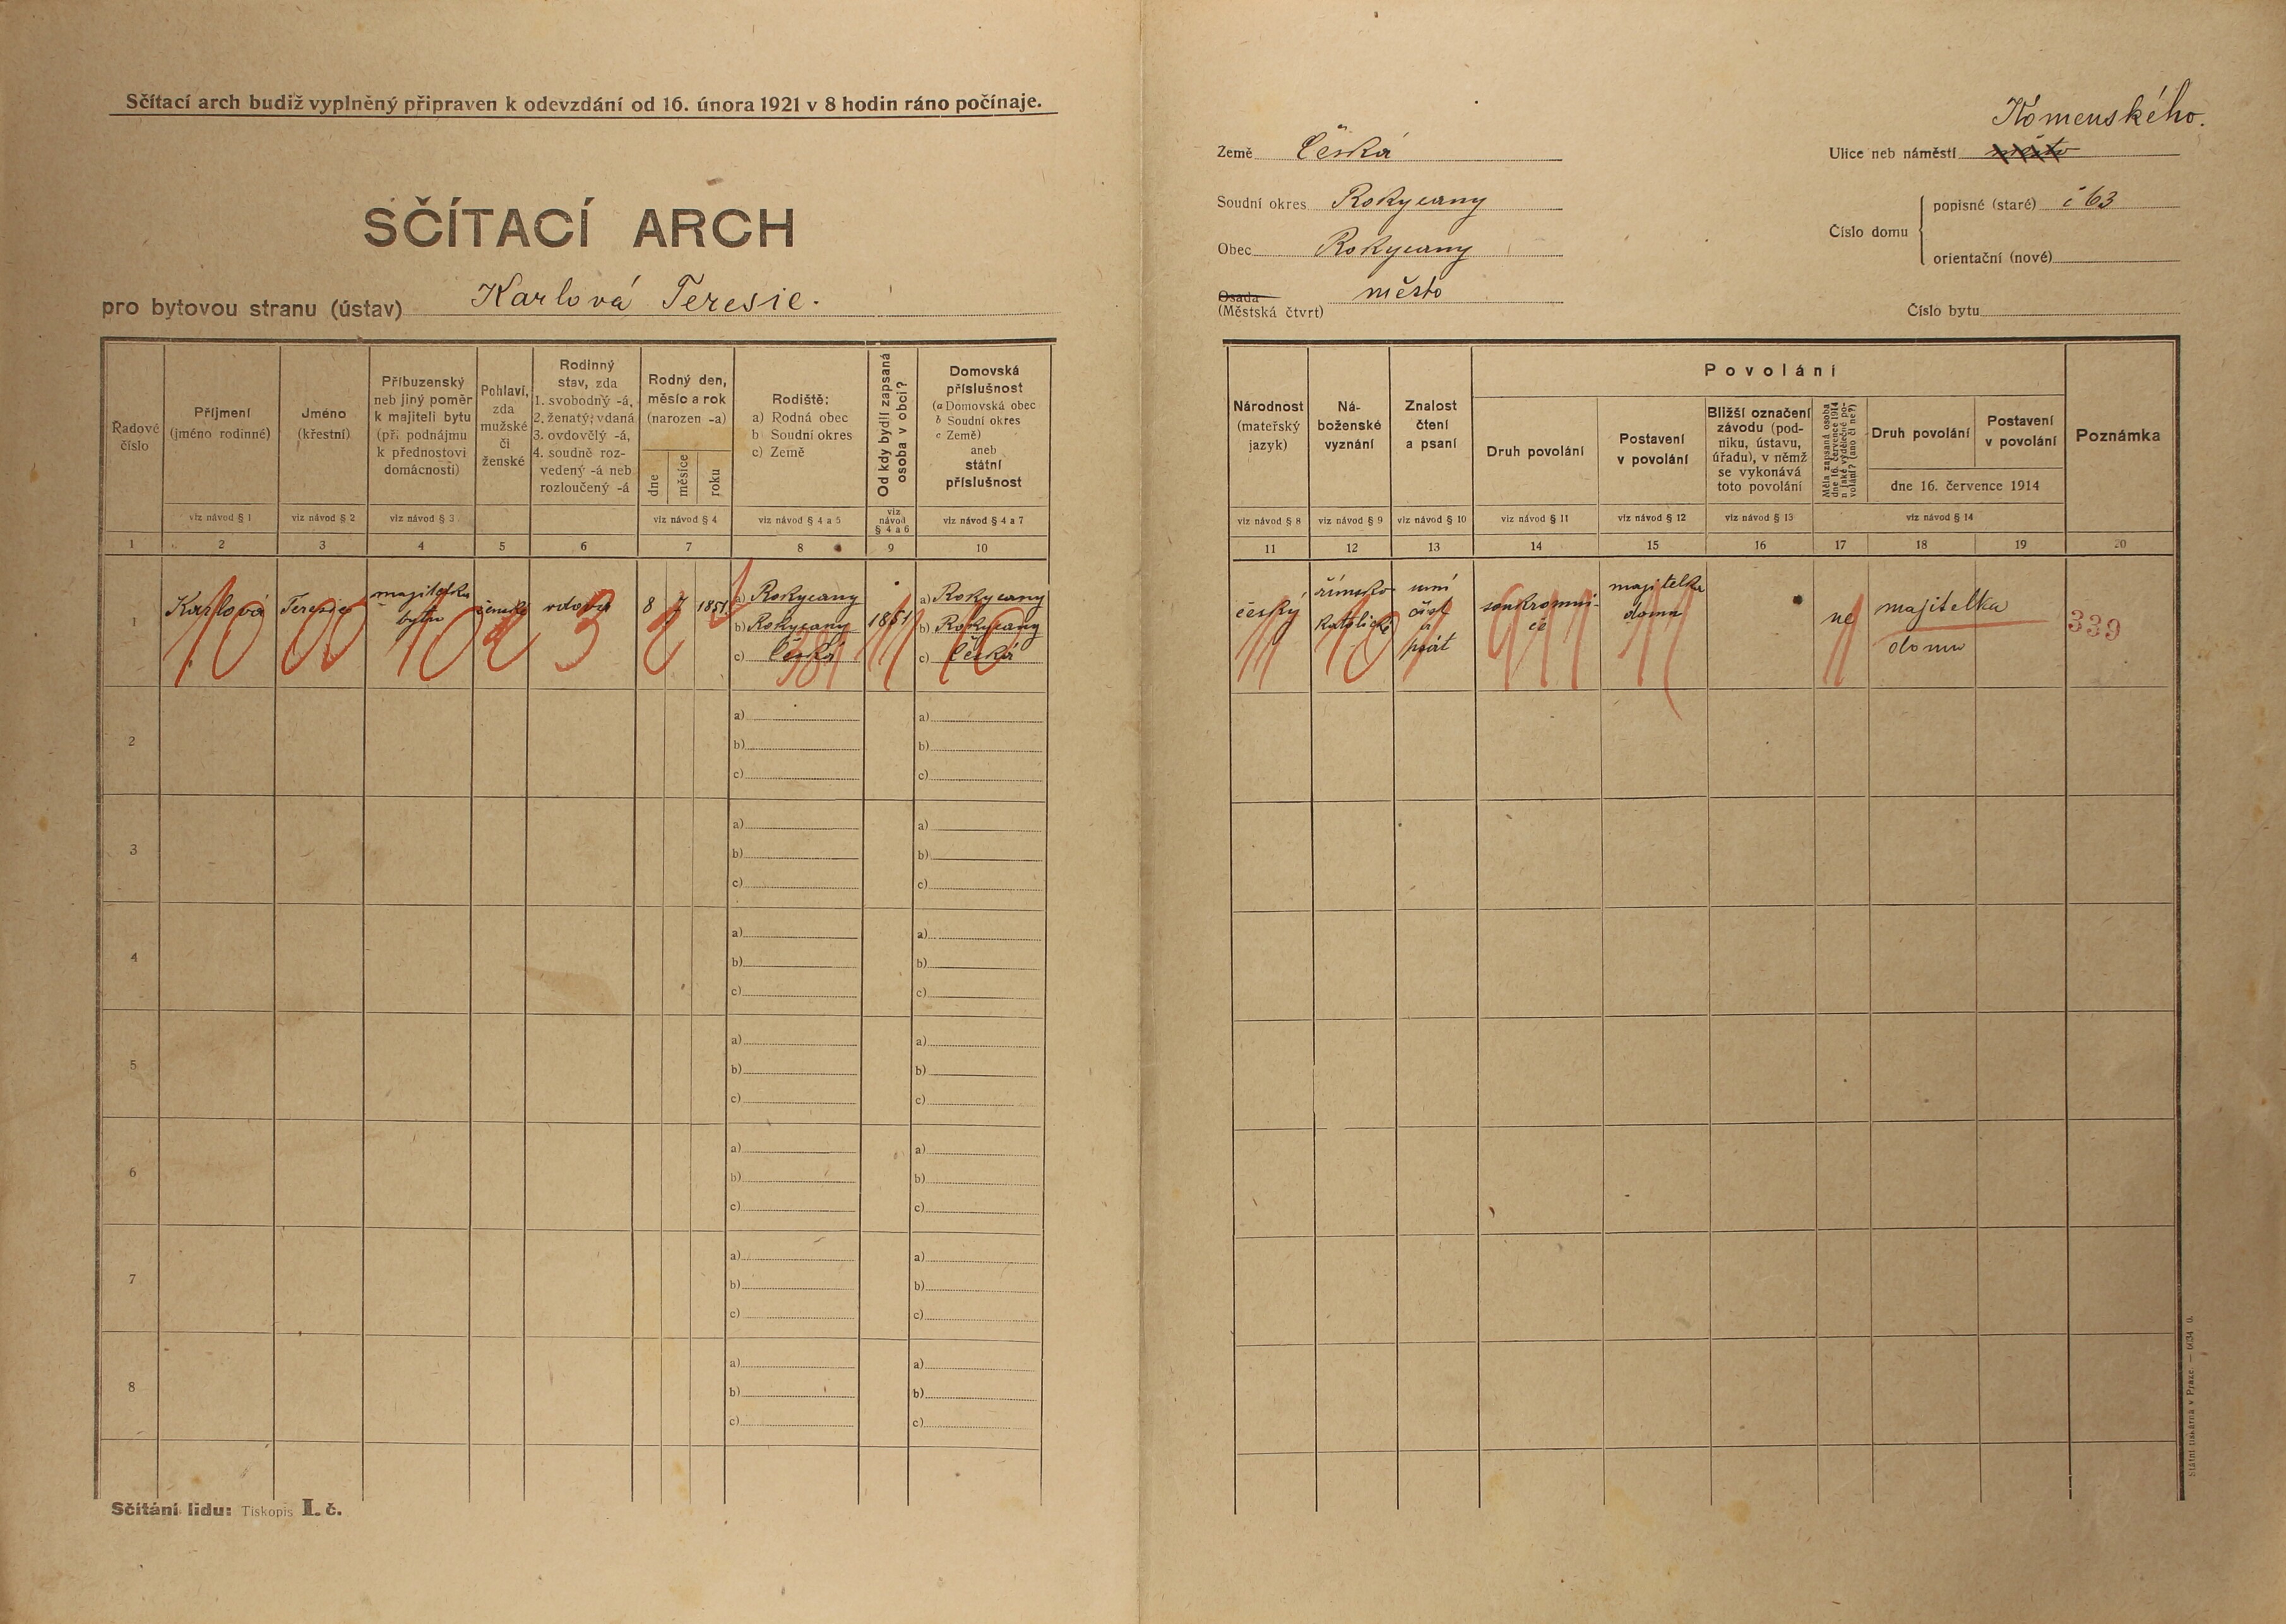 Sčítací arch budiž vyplněný připraven k odevzdání od 16. února 1921 v 8 hodin ráno počínaje.
SČÍTACÍ ARCH
pro bytovou stranu (ústav) Karlová Teresie.
Země Česká
Soudní okres Rokycany
Obec Rokycany
Osada město
(Městská čtvrt)
Komenského.
Ulice neb náměstí město
Číslo domu
popisné (staré) č 63
orientační (nové)
Číslo bytu
Řadové
číslo
Příjmení
(jméno rodinné)
viz návod § 1
Jméno
(křestní)
viz návod § 2
Příbuzenský
neb jiný poměr
k majiteli bytu
(při podnájmu
k přednostovi
domácnosti)
viz návod § 3
Pohlaví,
zda
mužské
či
ženské
Rodinný
stav, zda
1. svobodný -á,
2. ženatý, vdaná
3. ovdovělý -á,
4. soudně roz-
vedený -á neb
rozloučený -á
Rodný den,
měsíc a rok
(narozen -a)
dne
měsíce
roku
viz návod § 4
Rodiště:
a) Rodná obec
b Soudní okres
c) Země
viz návod § 4 a 5
Od kdy bydlí zapsaná
osoba v obci?
viz
návod
§ 4 a 6
Domovská
příslušnost
(a Domovská obec
b Soudní okres
c Země)
aneb
státní
příslušnost
viz návod § 4 a 7
Národnost
(mateřský
jazyk)
viz návod § 8
Ná-
boženské
vyznání
viz návod § 9
Znalost
čtení
a psaní
viz návod § 10
Povolání
Druh povolání
viz návod § 11
Postavení
v povolání
viz návod § 12
Bližší označení
závodu (pod-
niku, ústavu,
úřadu), v němž
se vykonává
toto povolání
viz návod § 13
Měla zapsaná osoba
dne 16. července 1914
n jaké výdělečné po-
volání? (ano či ne?)
Druh povolání
Postavení
v povolání
dne 16. července 1914
viz návod § 14
Poznámka
1 2 3 4 5 6 7 8 9 10
11 12 13 14 15 16 17 18 19 20
1
Karlová
Teresie
majitelka
bytu
ženské
vdova
8 7 1851
a) Rokycany
b) Rokycany
c) Česká
1851
a) Rokycany
b) Rokycany
c) Česká
český
římsko
katolické
umí
číst
a
psát
soukromni-
ce
majitelka
domu
ne
majitelka
domu
339
10 00 10 2 3 2
381 11 10
11 10 1 911 11 11
2
a) a)
b) b)
c) c)
3
a) a)
b) b)
c) c)
4
a) a)
b) b)
c) c)
5
a) a)
b) b)
c) c)
6
a) a)
b) b)
c) c)
7
a) a)
b) b)
c) c)
8
a) a)
b) b)
c) c)
Sčítání lidu: Tiskopis I. č.
Státní tiskárna v Praze.